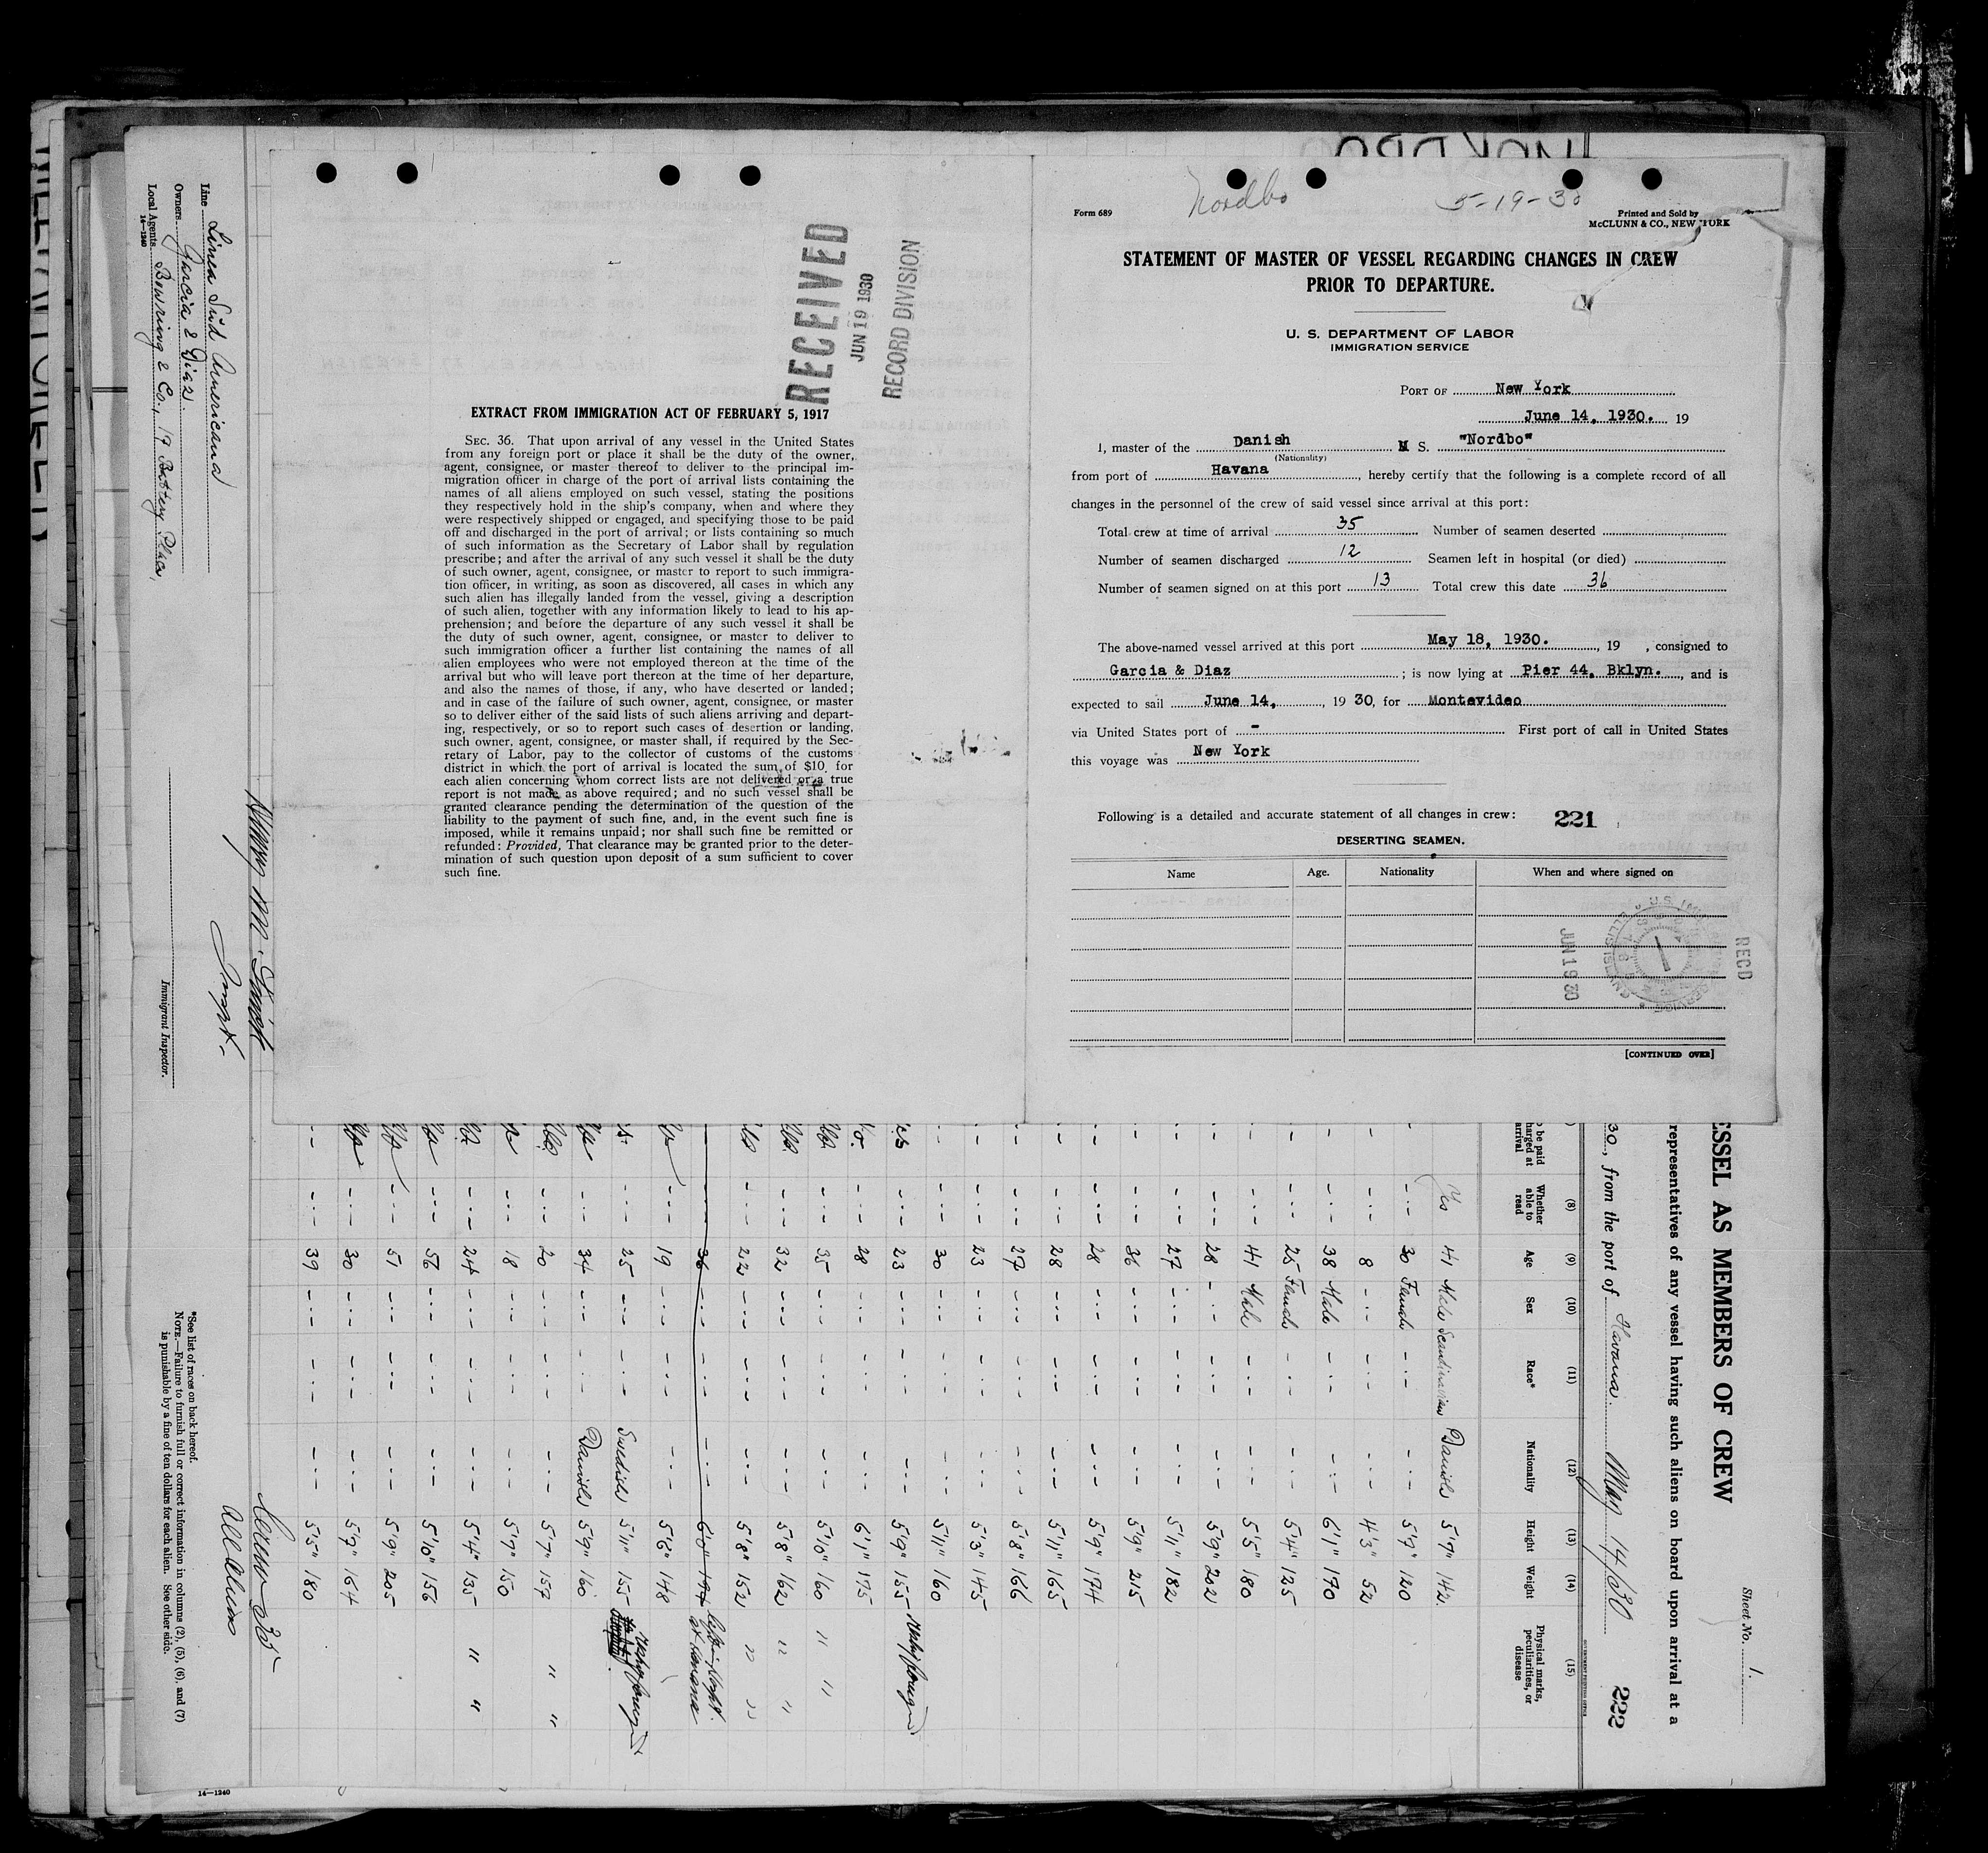 Nordbo 5-19-30
Form 689
Printed and Sold by
McCLUNN & CO., NEW YORK
STATEMENT OF MASTER OF VESSEL REGARDING CHANGES IN CREW
PRIOR TO DEPARTURE.
U. S. DEPARTMENT OF LABOR
IMMIGRATION SERVICE
PORT OF New York
June 14, 1930. 19
I, master of the Danish M S. "Nordbo"
(Nationality)
from port of Havana, hereby certify that the following is a complete record of all
changes in the personnel of the crew of said vessel since arrival at this port:
Total crew at time of arrival 35 Number of seamen deserted
Number of seamen discharged 12 Seamen left in hospital (or died)
Number of seamen signed on at this port 13 Total crew this date 36
The above-named vessel arrived at this port May 18, 1930., 19 , consigned to
Garcia & Diaz ; is now lying at Pier 44, Bklyn., and is
expected to sail June 14, , 19 30, for Montevideo
via United States port of - First port of call in United States
this voyage was New York
Following is a detailed and accurate statement of all changes in crew: 221
DESERTING SEAMEN.
Name Age. Nationality When and where signed on
RECD
JUN 19 30
[CONTINUED OVER]
RECEIVED
JUN 19 1930
RECORD DIVISION
EXTRACT FROM IMMIGRATION ACT OF FEBRUARY 5, 1917
SEC. 36. That upon arrival of any vessel in the United States
from any foreign port or place it shall be the duty of the owner,
agent, consignee, or master thereof to deliver to the principal im-
migration officer in charge of the port of arrival lists containing the
names of all aliens employed on such vessel, stating the positions
they respectively hold in the ship's company, when and where they
were respectively shipped or engaged, and specifying those to be paid
off and discharged in the port of arrival; or lists containing so much
of such information as the Secretary of Labor shall by regulation
prescribe; and after the arrival of any such vessel it shall be the duty
of such owner, agent, consignee, or master to report to such immigra-
tion officer, in writing, as soon as discovered, all cases in which any
such alien has illegally landed from the vessel, giving a description
of such alien, together with any information likely to lead to his ap-
prehension; and before the departure of any such vessel it shall be
the duty of such owner, agent, consignee, or master to deliver to
such immigration officer a further list containing the names of all
alien employees who were not employed thereon at the time of the
arrival but who will leave port thereon at the time of her departure,
and also the names of those, if any, who have deserted or landed;
and in case of the failure of such owner, agent, consignee, or master
so to deliver either of the said lists of such aliens arriving and depart-
ing, respectively, or so to report such cases of desertion or landing,
such owner, agent, consignee, or master shall, if required by the Sec-
retary of Labor, pay to the collector of customs of the customs
district in which the port of arrival is located the sum of $10 for
each alien concerning whom correct lists are not delivered or a true
report is not made as above required; and no such vessel shall be
granted clearance pending the determination of the question of the
liability to the payment of such fine, and, in the event such fine is
imposed, while it remains unpaid; nor shall such fine be remitted or
refunded: Provided, That clearance may be granted prior to the deter-
mination of such question upon deposit of a sum sufficient to cover
such fine.
Sheet No. 1.
ESSEL AS MEMBERS OF CREW
representatives of any vessel having such aliens on board upon arrival at a
30, from the port of Havana. May 14/30 222
(8) (9) (10) (11) (12) (13) (14) (15)
Whether able to read Age Sex Race* Nationality Height Weight Physical marks, peculiarities, or disease
Yes 41 Male Scandinavian Danish 5'7" 142
30 Female 5'7" 120
8 4'3" 52
38 Male 6'1" 170
25 Female 5'4" 125
41 Male 5'5" 180
28 5'9" 202
27 5'11" 182
36 5'9" 215
28 5'9" 174
28 5'11" 165
27 5'8" 166
23 5'3" 145
30 5'11" 160
23 5'9" 155
28 6'1" 175
35 5'10" 160 " "
32 5'8" 162 " "
22 5'8" 152 " "
36 6'0" 174 left hosp. at Havana
19 5'6" 148
25 Swedish 5'11" 155
34 Danish 5'9" 160
20 5'7" 157 " "
18 5'7" 150
24 5'4" 135 " "
56 5'10" 156
51 5'9" 205
30 5'7" 164
39 5'5" 180
Crew 35
All Aliens
Line Linea Sud Americana
Owners Garcia & Diaz.
Local Agents Bowring & Co., 17 Battery Place,
14—1240
Immigrant Inspector.
*See list of races on back hereof.
NOTE.—Failure to furnish full or correct information in columns (2), (5), (6), and (7)
is punishable by a fine of ten dollars for each alien. See other side.
14—1240